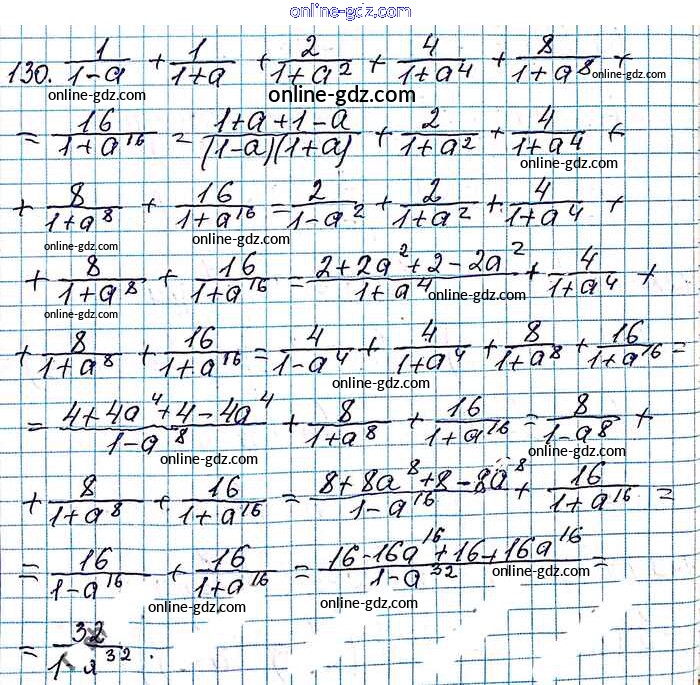 online-gdz.com
130. 1/(1-a) + 1/(1+a) + 2/(1+a^2) + 4/(1+a^4) + 8/(1+a^8) +
online-gdz.com online-gdz.com online-gdz.com
= 16/(1+a^16) = (1+a+1-a)/((1-a)(1+a)) + 2/(1+a^2) + 4/(1+a^4) +
online-gdz.com
+ 8/(1+a^8) + 16/(1+a^16) = 2/(1-a^2) + 2/(1+a^2) + 4/(1+a^4) +
online-gdz.com online-gdz.com online-gdz.com
+ 8/(1+a^8) + 16/(1+a^16) = (2+2a^2+2-2a^2)/(1+a^4) + 4/(1+a^4) +
online-gdz.com online-gdz.com
+ 8/(1+a^8) + 16/(1+a^16) = 4/(1-a^4) + 4/(1+a^4) + 8/(1+a^8) + 16/(1+a^16) =
online-gdz.com
= (4+4a^4+4-4a^4)/(1-a^8) + 8/(1+a^8) + 16/(1+a^16) = 8/(1-a^8) +
online-gdz.com online-gdz.com online-gdz.com
+ 8/(1+a^8) + 16/(1+a^16) = (8+8a^8+8-8a^8)/(1-a^16) + 16/(1+a^16) =
online-gdz.com online-gdz.com
= 16/(1-a^16) + 16/(1+a^16) = (16-16a^16+16+16a^16)/(1-a^32) =
online-gdz.com online-gdz.com
= 32/(1-a^32).